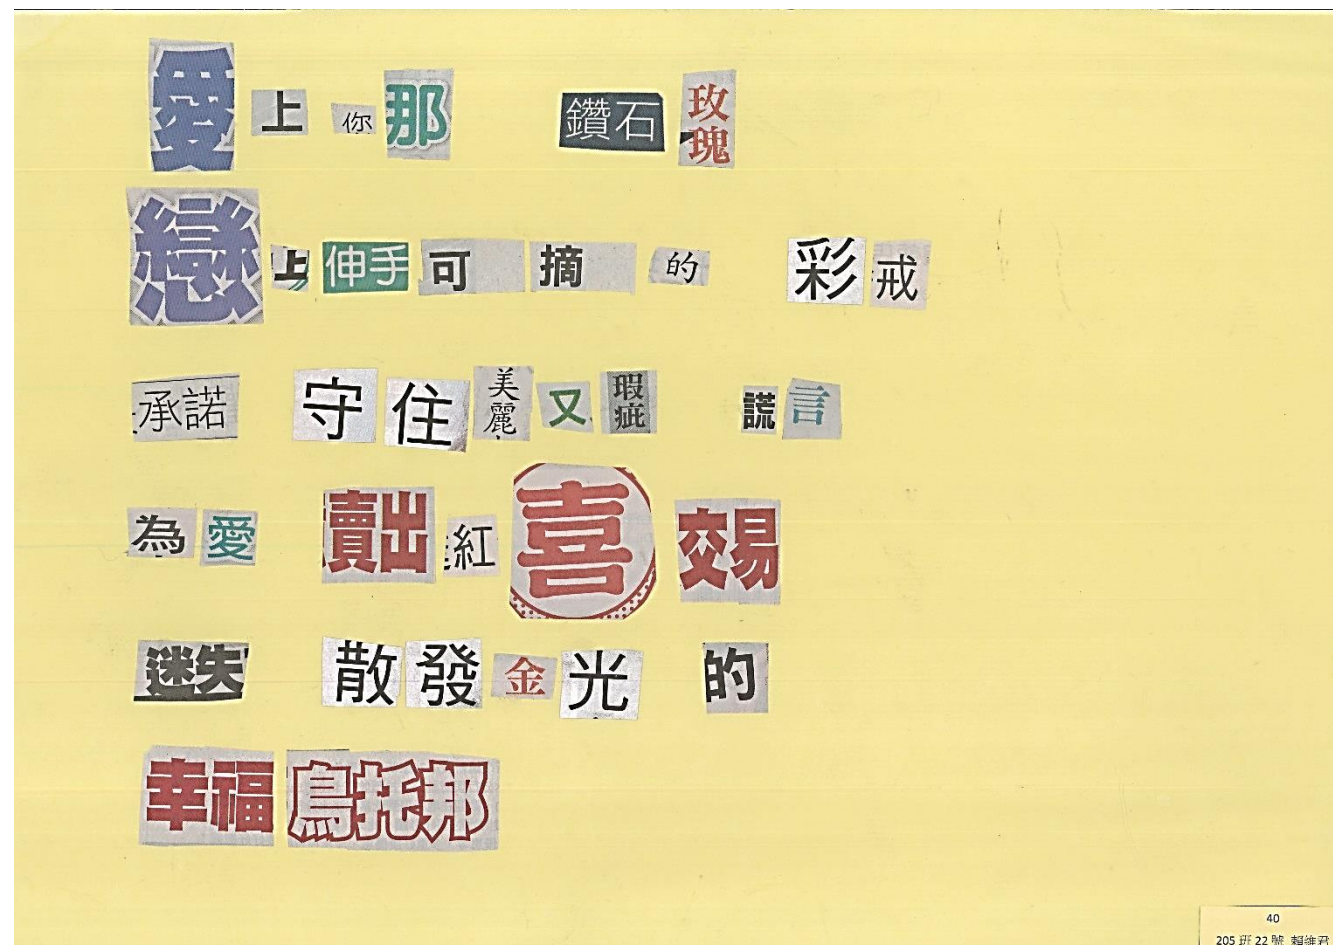 愛上你那 鑽石玫瑰
戀上伸手可摘的 彩戒
承諾 守住美麗又瑕疵 謊言
為愛 賣出紅喜 交易
迷失 散發金光的
幸福烏托邦
40
205 班 22 號 賴維君